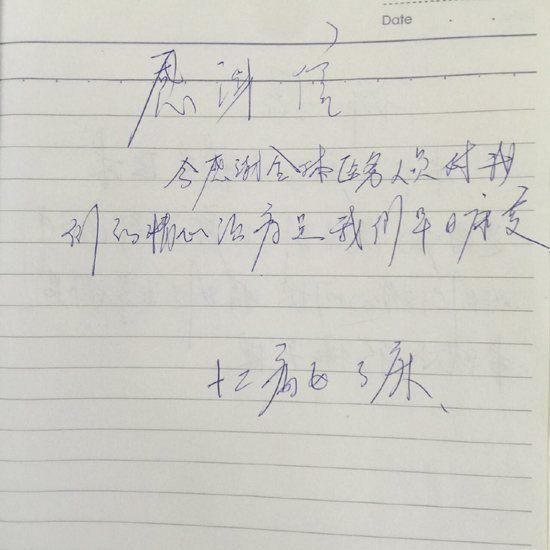 Date
感谢信
今感谢全体医务人员对我
们的精心治疗是我们早日康复
十二病区3床、